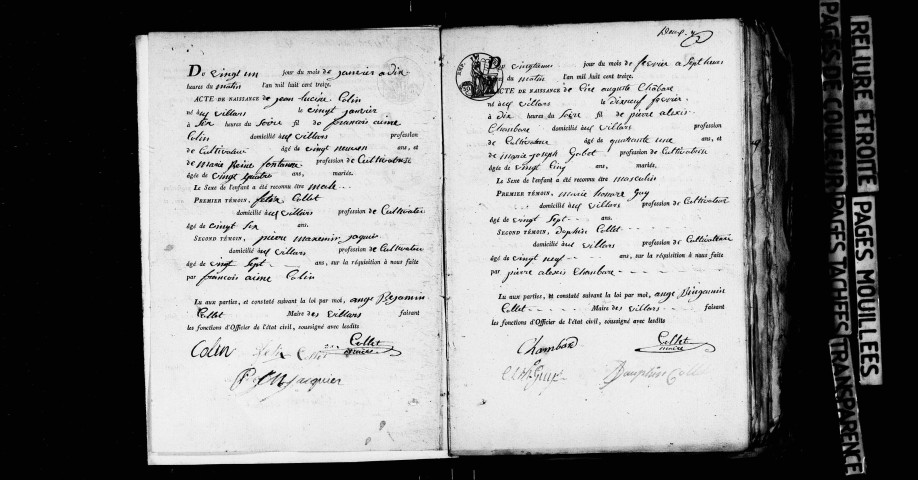 Du vingt un jour du mois de janvier a dix
heures du matin l'an mil huit cent treize.
ACTE DE NAISSANCE de jean lucien Colin
né villars le vingt janvier
à Six heures du Soire fil de françois aimé
Colin domicilié villars profession
de Cultivateur âgé de vingt ans, et
de marie Reine profession de Cultivatrice
âgée de vingt quatre ans, mariés.
Le Sexe de l'enfant a été reconnu être male
PREMIER TÉMOIN, felix Collet
domicilié villars profession de Cultivateur
âgé de vingt Six ans.
SECOND TÉMOIN, pierre maximin jaquier
domicilié villars profession de Cultivateur
âgé de vingt Sept ans, sur la réquisition à nous faite
par françois aimé Colin
Lu aux parties, et constaté suivant la loi par moi, ange Bejamin
Collet Maire des villars faisant
les fonctions d'Officier de l'état civil, soussigné avec lesdits
Colin Collet
maire
Jacquier
2
Du vingtieme jour du mois de fevrier a Sept heures
du matin l'an mil huit cent treize.
ACTE DE NAISSANCE de auguste Chabare
né villars le dixneuf fevrier
à dix heures du Soire fil de pierre alexis
Chambare domicilié villars profession
de Cultivateur âgé de quarante une ans, et
de marie joseph Gabet profession de Cultivatrice
âgée de vingt Cinq ans, mariés.
Le Sexe de l'enfant a été reconnu être masculin
PREMIER TÉMOIN, marie honoré Guy
domicilié villars profession de Cultivateur
âgé de vingt Sept ans.
SECOND TÉMOIN, dophin Collet
domicilié villars profession de Cultivateur
âgé de vingt neuf ans, sur la réquisition à nous faite
par pierre alexis Chambare
Lu aux parties, et constaté suivant la loi par moi, ange Bingamin
Collet Maire des villars faisant
les fonctions d'Officier de l'état civil, soussigné avec lesdits
Chambard Collet
maire
Dauphin Coll
RELIURE ETROITE PAGES MOUILLEES
PAGES DE COULEUR PAGES TACHEES TRANSPARENCE